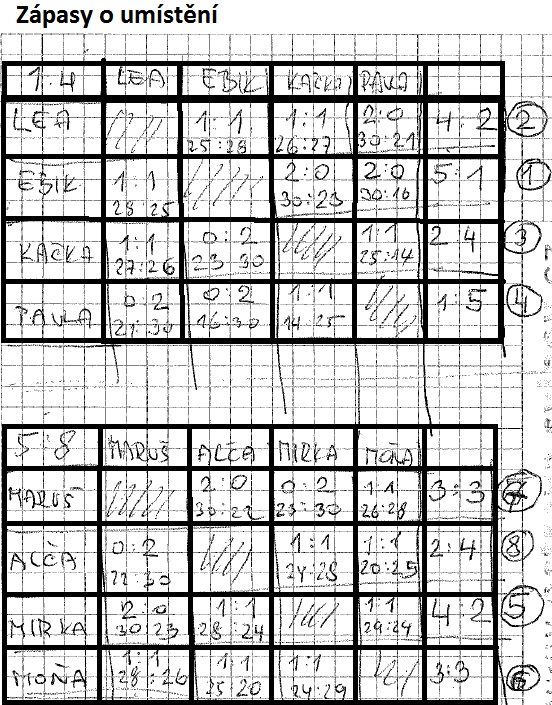 Zápasy o umístění
1.4 LEA EBIK KAČKA PAVLA
LEA 1:1 1:1 2:0 4:2 2
25:28 26:27 30:21
EBIK 1:1 2:0 2:0 5:1 1
28:25 30:23 30:16
KAČKA 1:1 0:2 1:1 2 4 3
27:26 23 30 25:14
PAVLA 0:2 0:2 1:1 1:5 4
21:30 16:30 14:25
5:8 MARUŠ ALČA MIRKA MOŇA
MARUŠ 2:0 0:2 1:1 3:3 7
30:22 23:30 26:28
ALČA 0:2 1:1 1:1 2:4 8
22:30 24:28 20:25
MIRKA 2:0 1:1 1:1 4:2 5
30 23 28:24 29:24
MOŇA 1:1 1:1 1:1 3:3 6
28:26 25 20 24:29